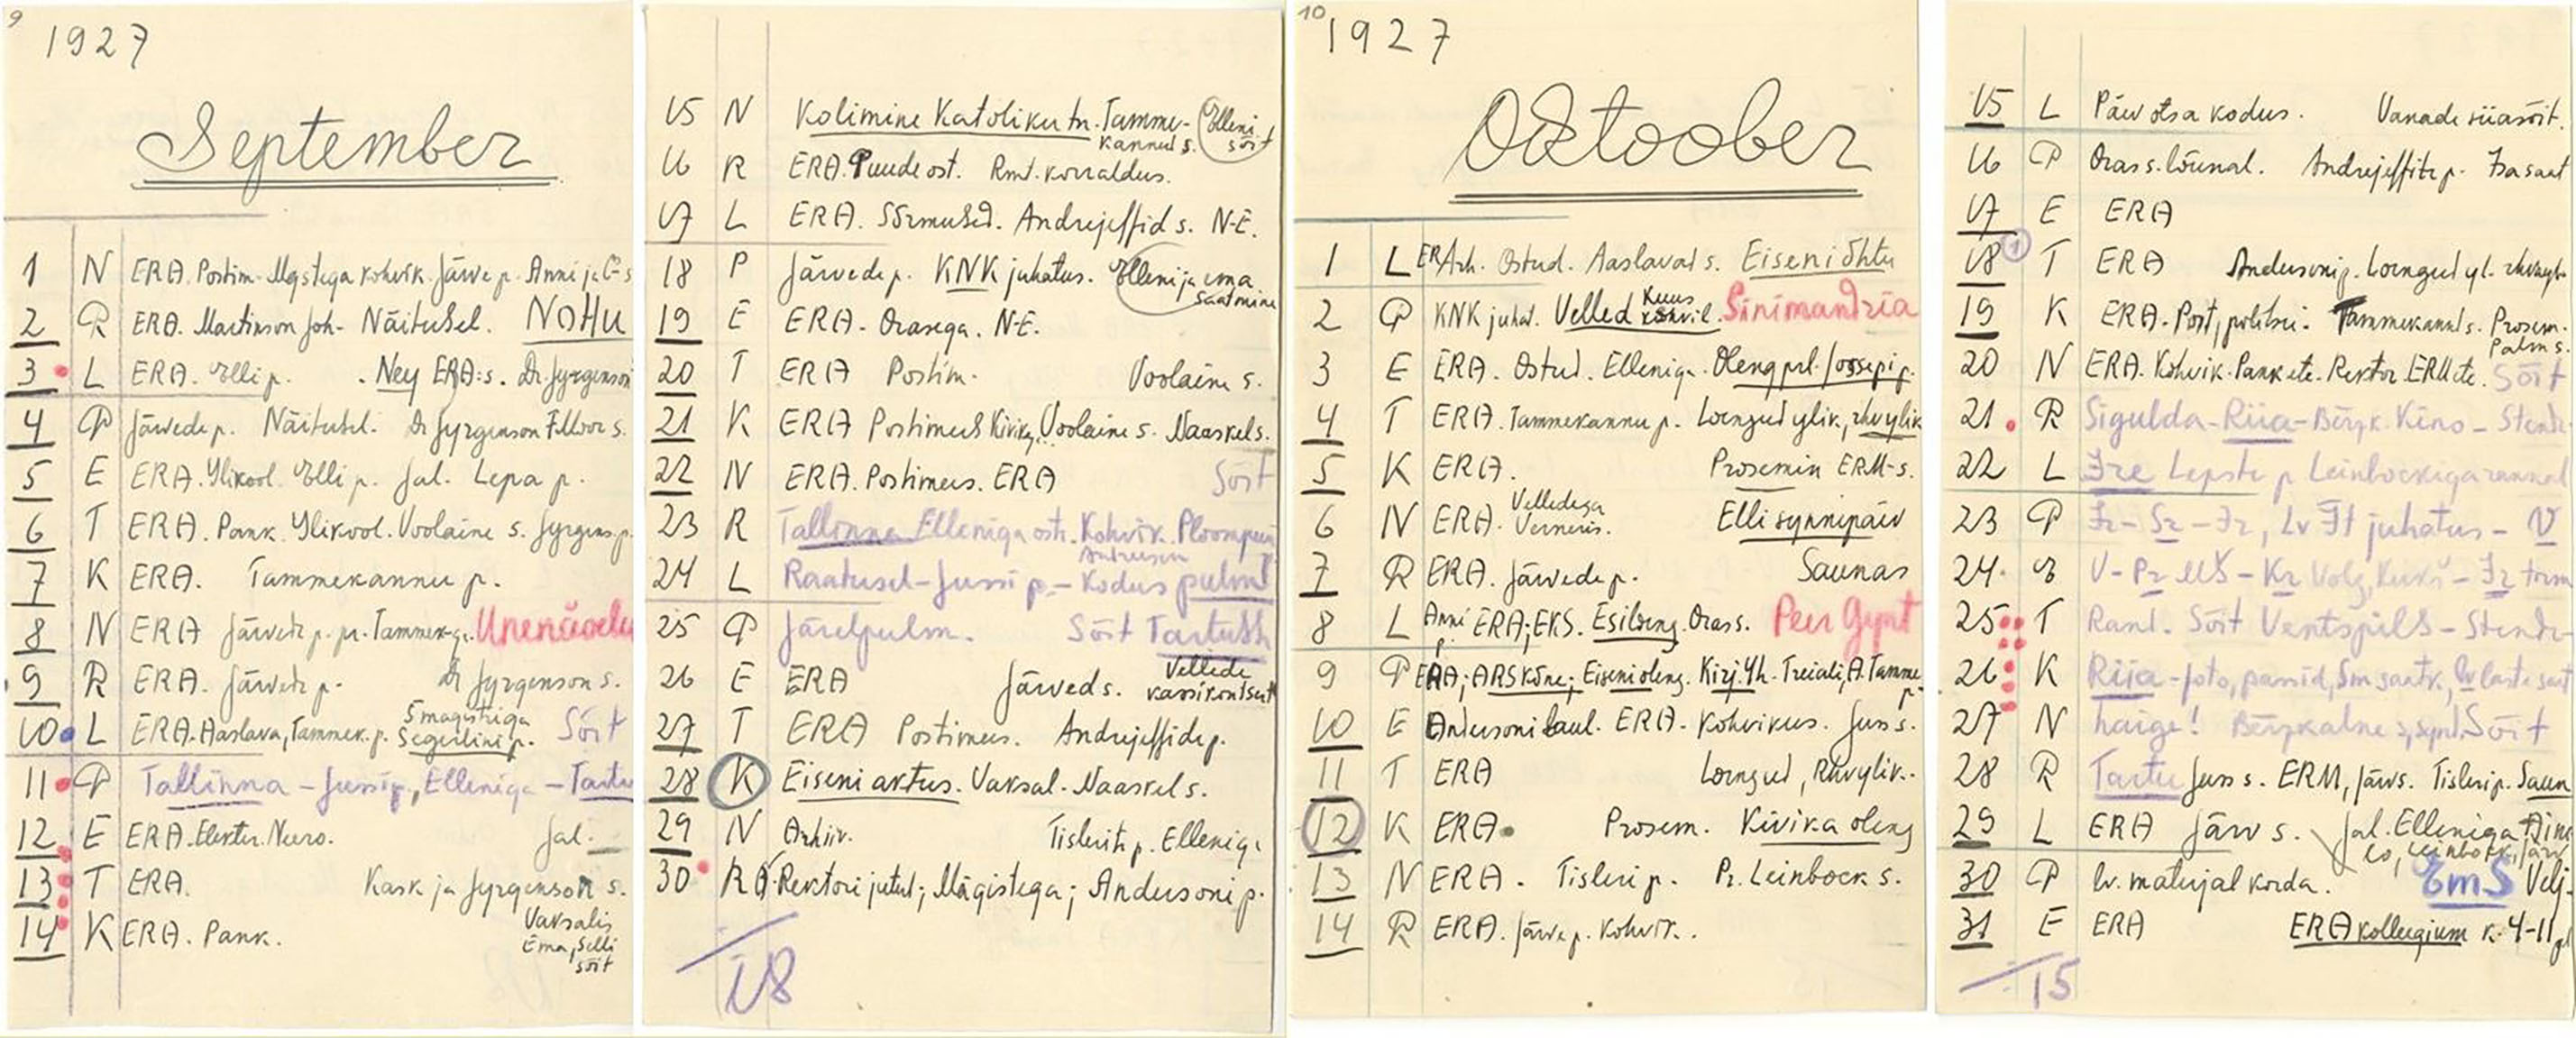 9
1927
September
1 N ERA. Postim. Mgstega kohvik. Järve p. Anni ja
2 R ERA. Martinson Joh- Näitusel. NoHu
3 L ERA. Elli p. Ney ERA:s. Dr Jyrgenson
4 P Järvede p. Näitusel. Dr Jyrgenson s.
5 E ERA. Ylikool. Elli p. Jal. Lepa p.
6 T ERA. Pank. Ylikool. Voolaine s. Jyrgens. p.
7 K ERA. Tammekannu p.
8 N ERA Järvede p. pr. Tammek-g. Unenäoelu
9 R ERA. Järvede p. Dr Jyrgenson s.
10 L ERA. Aaslava, Tammek. p. 5 magistriga Segerlini p. Sõit
11 P Tallinna - Jussi p, Elleniga - Tartu
12 E ERA. Elekter. Neero. Jal.
13 T ERA. Kask ja Jyrgenson s.
14 K ERA. Pank. Vaksalis
Ema, Selli
sõit
15 N Kolimine Katoliku tn. Tamme- Elleni
kannud s. sõit
16 R ERA. Puude ost. Rmt. korraldus.
17 L ERA. Sõrmused. Andrejeffid s. N-E.
18 P Järvede p. KNK juhatus. Elleni ja ema
saatmine
19 E ERA. Orasega. N-E.
20 T ERA Postim. Voolaine s.
21 K ERA Postimees Kivikg. Voolaine s. Naaskel s.
22 N ERA. Postimees. ERA Sõit
23 R Tallinna Elleniga ost. Kohvik.
24 L Raatusel - Jussi p. - Kodus pulmad
25 P Järelpulm. Sõit Tartusse
26 E ERA Järved s. Vellede
kassikontsert
27 T ERA Postimees. Andrejeffide p.
28 K Eiseni aktus. Vaksal. Naaskel s.
29 N Arhiiv. Tislerite p. Elleniga
30 R Rektori jutul; Mägistega; Andersoni p.
18
10
1927
Oktoober
1 L ERArh. Ostud. Aaslavad s. Eiseni õhtu
2 P KNK juhat. Velled Kuus kohvil. Sinimandria
3 E ERA. Ostud. Elleniga. Oleng prl. Joosepi p.
4 T ERA. Tammekannu p. Loengud ylik, rhvylik
5 K ERA. Prosemin ERM-s.
6 N ERA. Velledega Verneris. Elli synnipäiv
7 R ERA. Järvede p. Saunas
8 L Anni p. ERA; EKS. Esiloeng. Oras s. Peer Gynt
9 P ERA; ARS kõne; Eiseni oleng. Kirj. Yh. Treiali, A. Tamme p.
10 E Andersoni laul. ERA. Kohvikus. Juss s.
11 T ERA Loengud, Rhvylik.
12 K ERA. Prosem. Kivika oleng
13 N ERA. Tisleri p. Pr. Leinbock s.
14 R ERA. Järve p. Kohvik.
15 L Päev otsa kodus. Vanade siiasõit.
16 P Oras s. lõunal. Andrejeffite p. Isa saat
17 E ERA
18 1 T ERA Andersoni p. Loengud yl. rhvayl.
19 K ERA. Post, politsei. Tammekannu s. Prosem.
Palm s.
20 N ERA. Kohvik. Pank etc. Rektor. ERM etc. Sõit
21 R Sigulda - Riia - Bērzk. Kino - Stende
22 L Ire Lepste p Leinbockiga rannal
23 P Ir - Sr - Ir, Lv Ft juhatus - V
24 V - Pz - Kr - Ir
25 T Rand. Sõit Ventspils - Stende
26 K Riia - foto, passid, Sm saatk.,
27 N haige! Bērzkalne s, Sõit
28 R Tartu Juss s. ERM, Järv s. Tisleri p. Saun
29 L ERA Järv s. Jal. Elleniga
Leinbock, Järv
30 P lv. materjal korda. EmS Velj-
31 E ERA ERA kolleegium k. 4-11
15